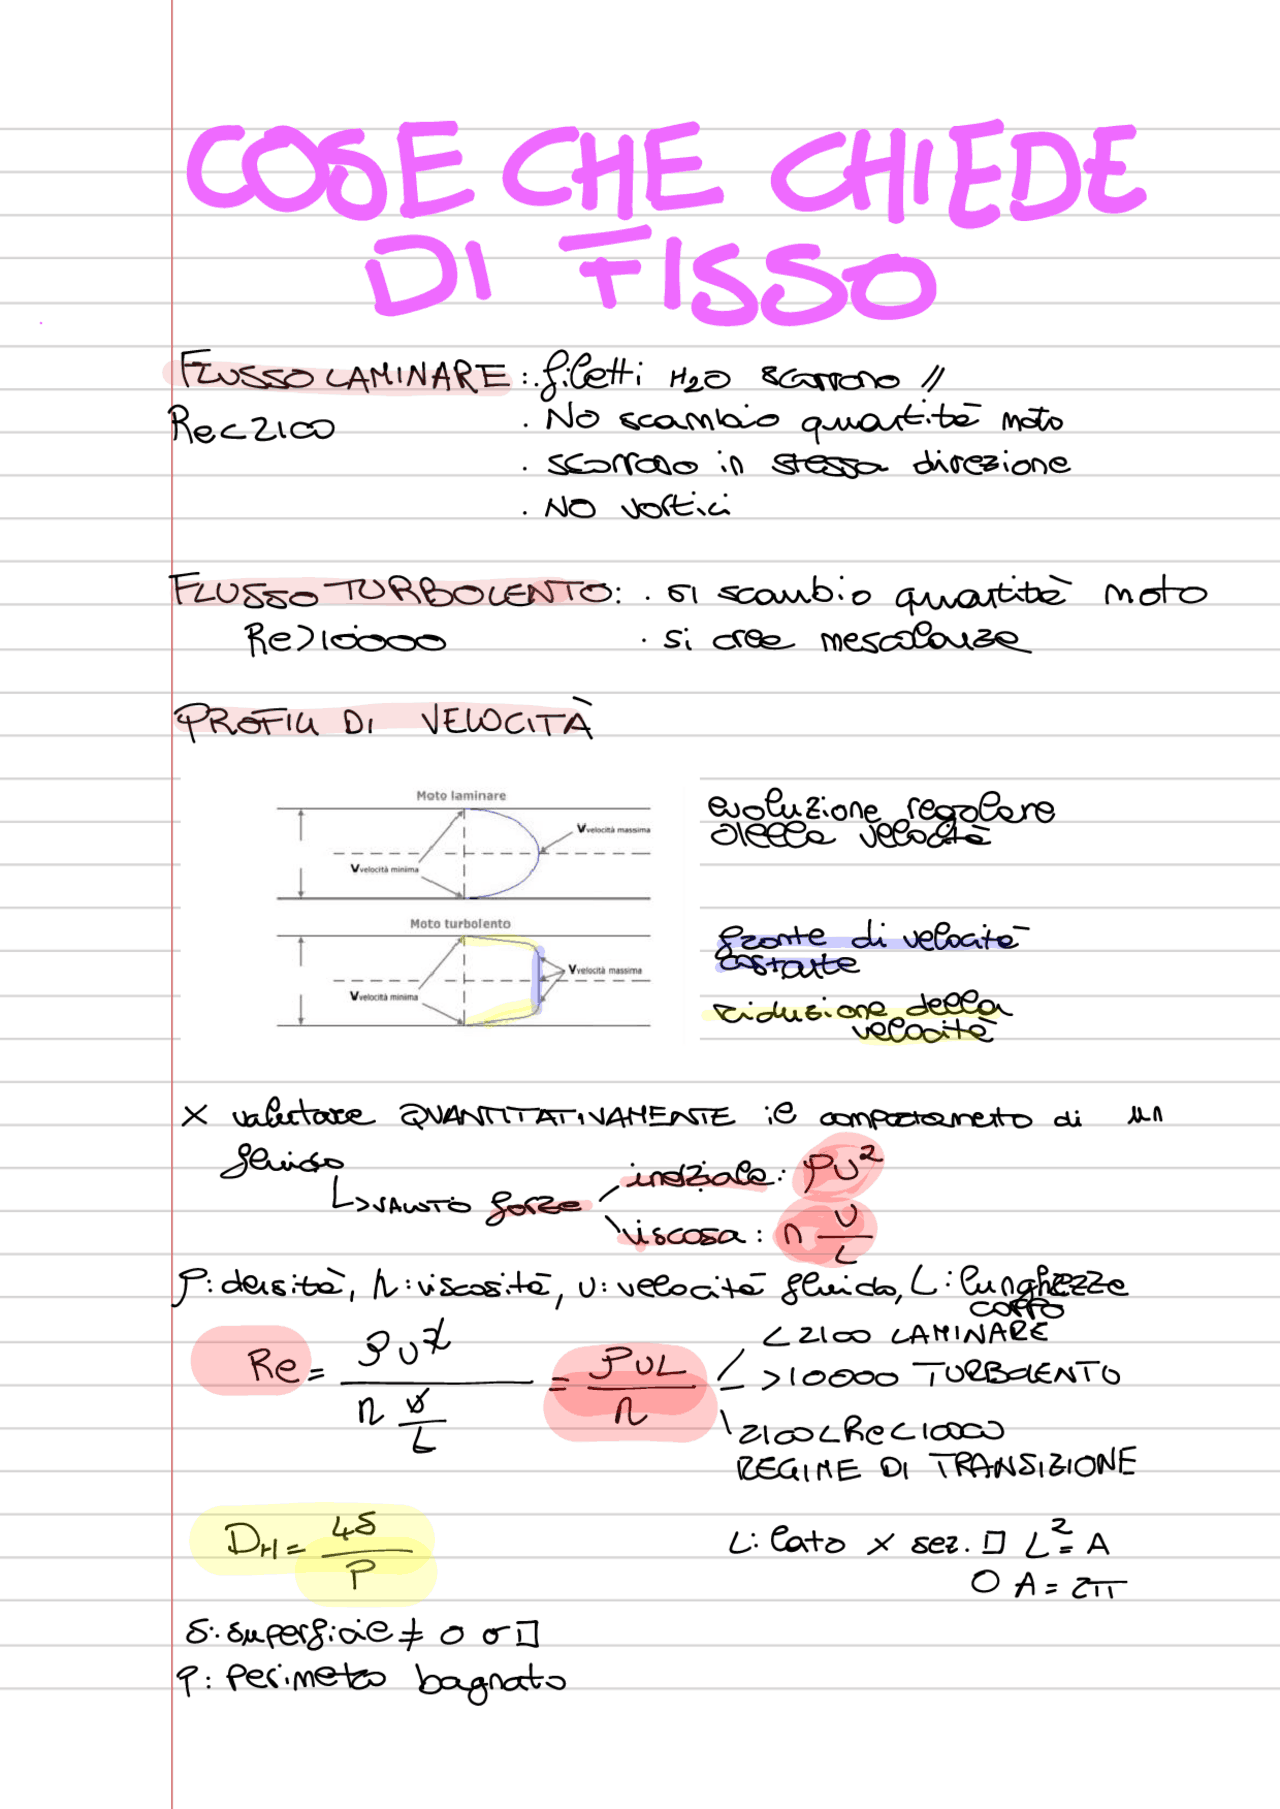 COSE CHE CHIEDE
DI FISSO
FLUSSO LAMINARE : . filetti H2O scorrono //
Re<2100 . NO scambio quantità moto
. scorrono in stessa direzione
. NO vortici
FLUSSO TURBOLENTO: . si scambio quantità moto
Re>10000 . si crea mescolanza
PROFILI DI VELOCITÀ
Moto laminare
V velocità massima
V velocità minima
evoluzione regolare
della velocità
Moto turbolento
V velocità massima
V velocità minima
fronte di velocità
costante
riduzione della
velocità
X valutare QUANTITATIVAMENTE il comportamento di un
fluido
↳ VALUTO forze
inerziale: ρU²
viscosa: η U/L
ρ: densità, η: viscosità, U: velocità fluido, L: lunghezza
corpo
Re = ρU² / (η U/L) = ρUL/η
< 2100 LAMINARE
> 10000 TURBOLENTO
2100<Re<10000
REGIME DI TRANSIZIONE
DH = 4S/P
L: lato x sez. □ L² = A
O A = 2π
S: superficie ≠ O o □
P: perimetro bagnato